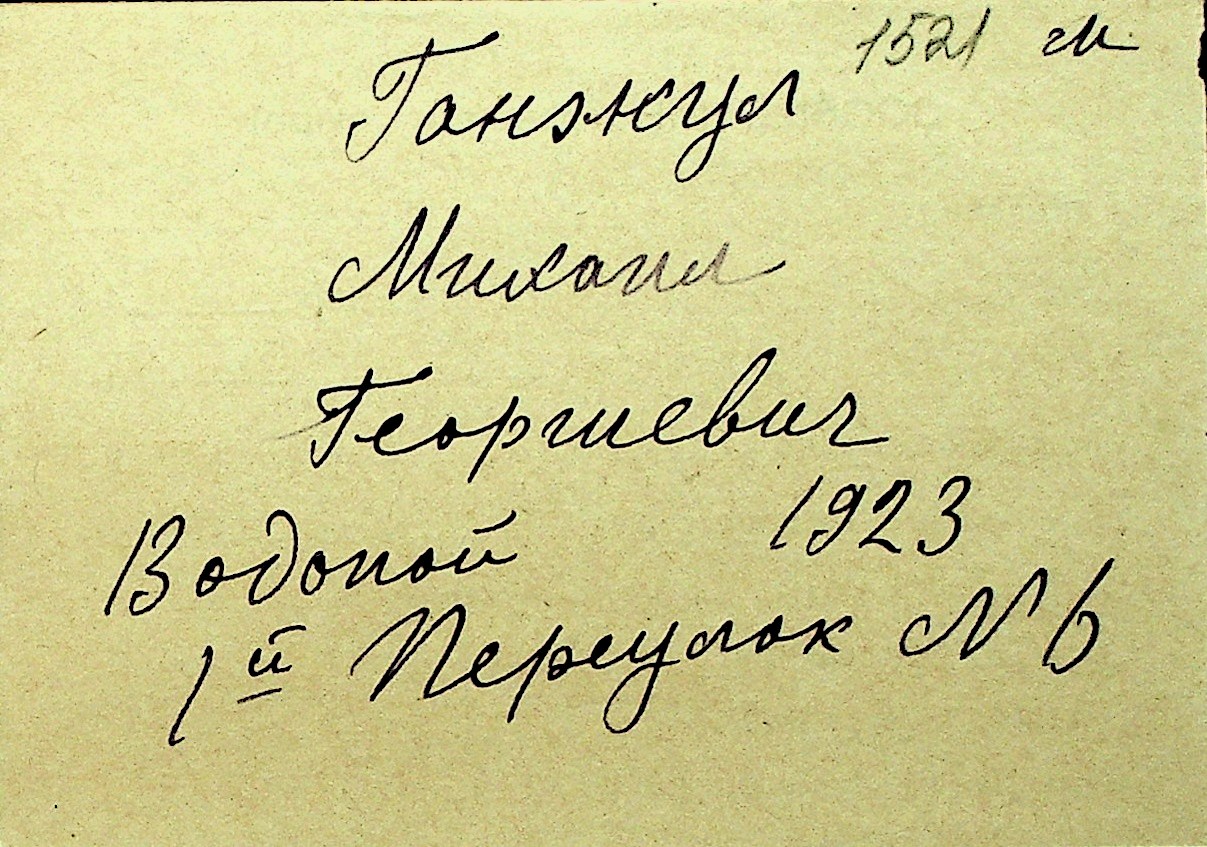 1521 м
Ганжул
Михаил
Георгиевич
1923
Водопой
1й Переулок N 6